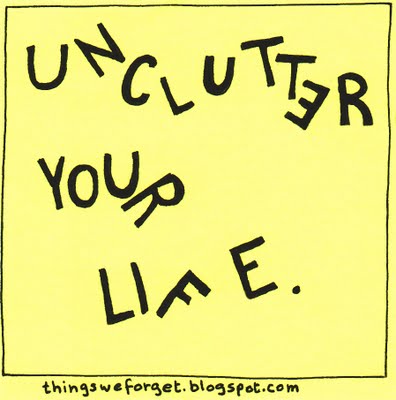 UNCLUTTER
YOUR
LIFE.
thingsweforget.blogspot.com